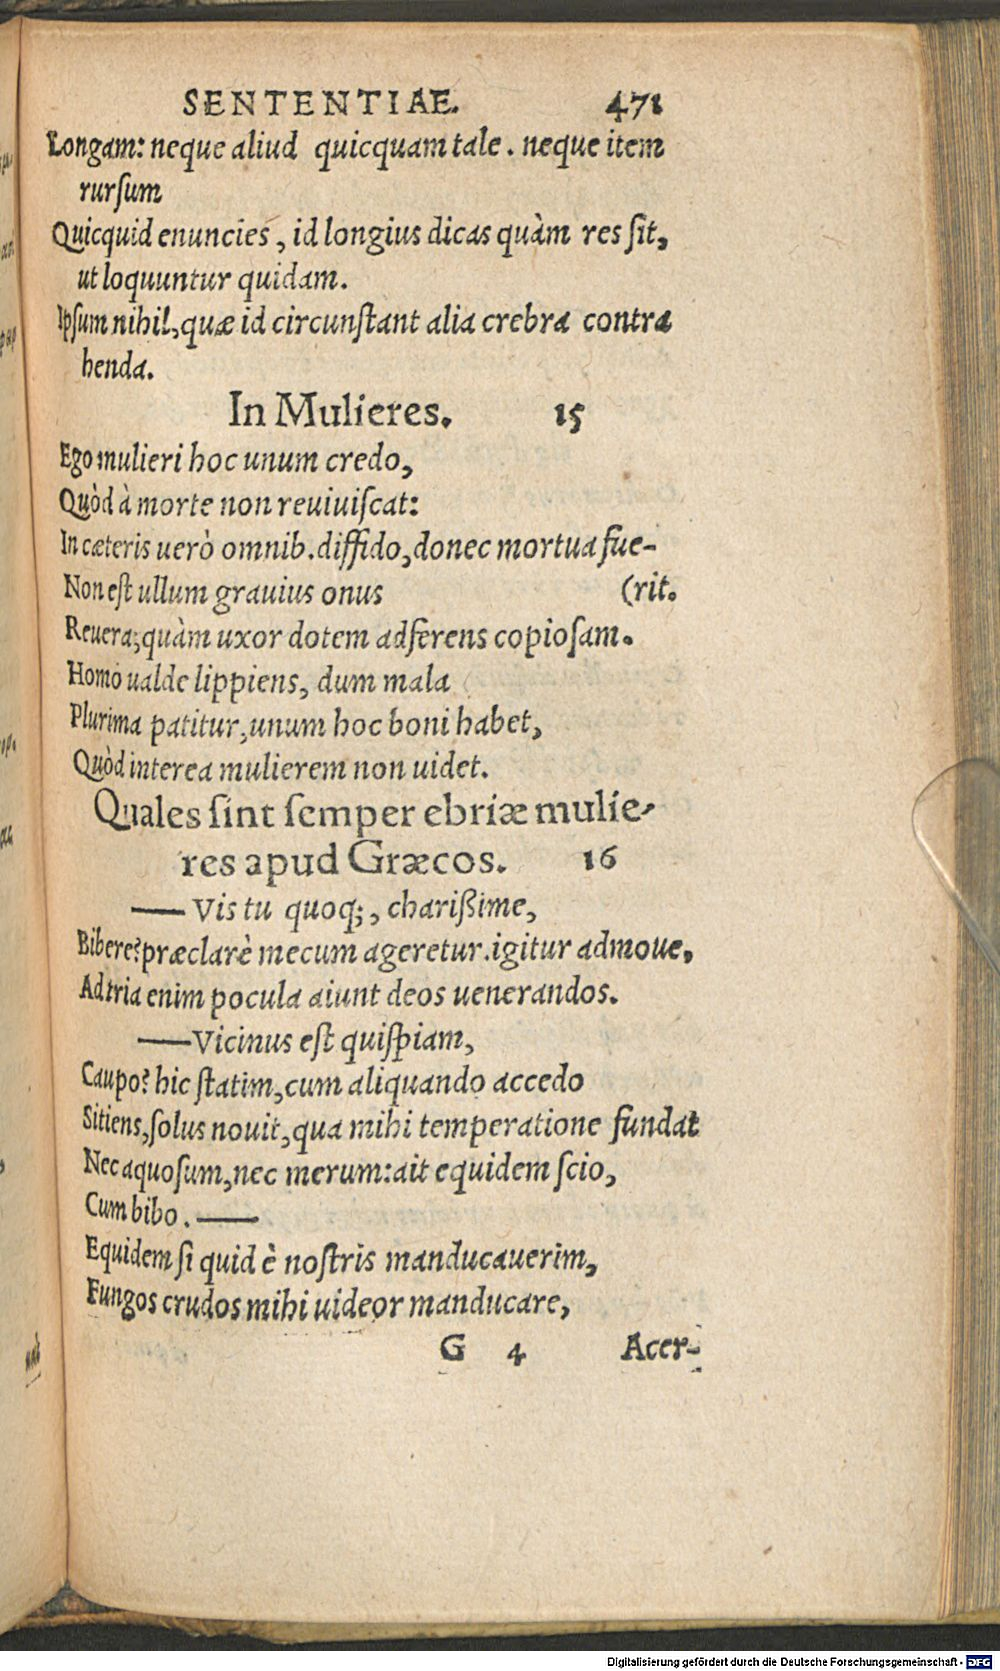 SENTENTIAE. 471
Longam: neque aliud quicquam tale. neque item
rurſum
Quicquid enuncies, id longius dicas quàm res ſit,
ut loquuntur quidam.
Ipſum nihil, quæ id circunſtant alia crebra contra
henda.
In Mulieres. 15
Ego mulieri hoc unum credo,
Quòd à morte non reuiuiſcat:
In cæteris uerò omnib. diffido, donec mortua fue-
Non eſt ullum grauius onus (rit.
Reuera, quàm uxor dotem adferens copioſam.
Homo ualde lippiens, dum mala
Plurima patitur, unum hoc boni habet,
Quòd interea mulierem non uidet.
Quales ſint ſemper ebriæ mulie-
res apud Græcos. 16
— Vis tu quoq;, charißime,
Bibere? præclarè mecum ageretur. igitur admoue,
Ad tria enim pocula aiunt deos uenerandos.
— Vicinus eſt quiſpiam,
Caupo? hic ſtatim, cum aliquando accedo
Sitiens, ſolus nouit, qua mihi temperatione fundat
Nec aquoſum, nec merum: ait equidem ſcio,
Cum bibo. —
Equidem ſi quid è noſtris manducauerim,
Fungos crudos mihi uideor manducare,
G 4 Acer-
Digitalisierung gefördert durch die Deutsche Forschungsgemeinschaft - DFG